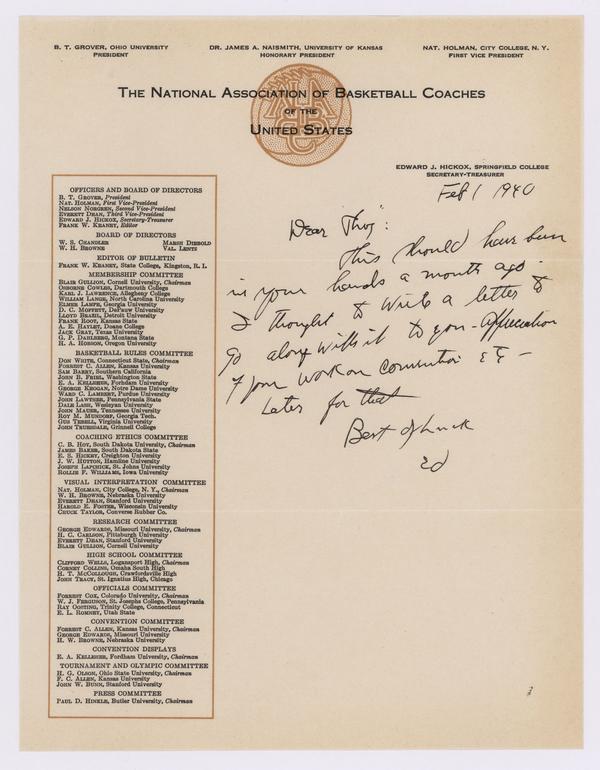 B. T. Grover, Ohio University
President
Dr. James A. Naismith, University of Kansas
Honorary President
Nat. Holman, City College, N. Y.
First Vice President
The National Association of Basketball Coaches
of the
United States
Edward J. Hickox, Springfield College
Secretary-Treasurer
Feb 1 1940
Dear
This should have been
in your hands a month ago.
I thought to write a letter to
go along with it to you - appreciation
of your work on convention etc -
Later for that
Best of Luck
Ed
OFFICERS AND BOARD OF DIRECTORS
B. T. Grover, President
Nat. Holman, First Vice-President
Nelson Norgren, Second Vice-President
Everett Dean, Third Vice-President
Edward J. Hickox, Secretary-Treasurer
Frank W. Keaney, Editor
BOARD OF DIRECTORS
W. S. Chandler Marsh Diebold
W. H. Browne Val. Lentz
EDITOR OF BULLETIN
Frank W. Keaney, State College, Kingston, R. I.
MEMBERSHIP COMMITTEE
Blair Gullion, Cornell University, Chairman
Osborne Cowles, Dartmouth College
Karl J. Lawrence, Allegheny College
William Lange, North Carolina University
Elmer Lampe, Georgia University
D. C. Moffett, DePauw University
Lloyd Brazil, Detroit University
Frank Root, Kansas State
A. E. Haylet, Doane College
Jack Gray, Texas University
G. P. Dahlberg, Montana State
H. A. Hobson, Oregon University
BASKETBALL RULES COMMITTEE
Don White, Connecticut State, Chairman
Forrest C. Allen, Kansas University
Sam Barry, Southern California
John B. Friel, Washington State
E. A. Kelleher, Fordham University
George Keogan, Notre Dame University
Ward C. Lambert, Purdue University
John Lawther, Pennsylvania State
Dale Lash, Wesleyan University
John Mauer, Tennessee University
Roy M. Mundorf, Georgia Tech.
Gus Tebell, Virginia University
John Truesdale, Grinnell College
COACHING ETHICS COMMITTEE
C. B. Hoy, South Dakota University, Chairman
James Baker, South Dakota State
E. S. Hickey, Creighton University
J. W. Hutton, Hamline University
Joseph Lapchick, St. Johns University
Rollie F. Williams, Iowa University
VISUAL INTERPRETATION COMMITTEE
Nat. Holman, City College, N. Y., Chairman
W. H. Browne, Nebraska University
Everett Dean, Stanford University
Harold E. Foster, Wisconsin University
Chuck Taylor, Converse Rubber Co.
RESEARCH COMMITTEE
George Edwards, Missouri University, Chairman
H. C. Carlson, Pittsburgh University
Everett Dean, Stanford University
Blair Gullion, Cornell University
HIGH SCHOOL COMMITTEE
Clifford Wells, Logansport High, Chairman
Corney Collins, Omaha South High
H. T. McCollough, Crawfordsville High
John Tracy, St. Ignatius High, Chicago
OFFICIALS COMMITTEE
Forrest Cox, Colorado University, Chairman
W. J. Ferguson, St. Josephs College, Pennsylvania
Ray Oosting, Trinity College, Connecticut
E. L. Romney, Utah State
CONVENTION COMMITTEE
Forrest C. Allen, Kansas University, Chairman
George Edwards, Missouri University
H. W. Browne, Nebraska University
CONVENTION DISPLAYS
E. A. Kelleher, Fordham University, Chairman
TOURNAMENT AND OLYMPIC COMMITTEE
H. G. Olson, Ohio State University, Chairman
F. C. Allen, Kansas University
John W. Bunn, Stanford University
PRESS COMMITTEE
Paul D. Hinkle, Butler University, Chairman